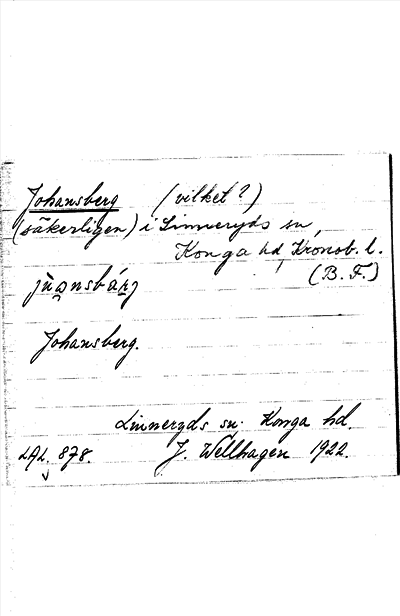 Johansberg (vilket?)
(säkerligen) i Linneryds sn,
Konga hd, Kronob. l.
(B. F.)
Johansberg.
Linneryds sn. Konga hd.
LAL. 878. J. Wellhagen 1922.